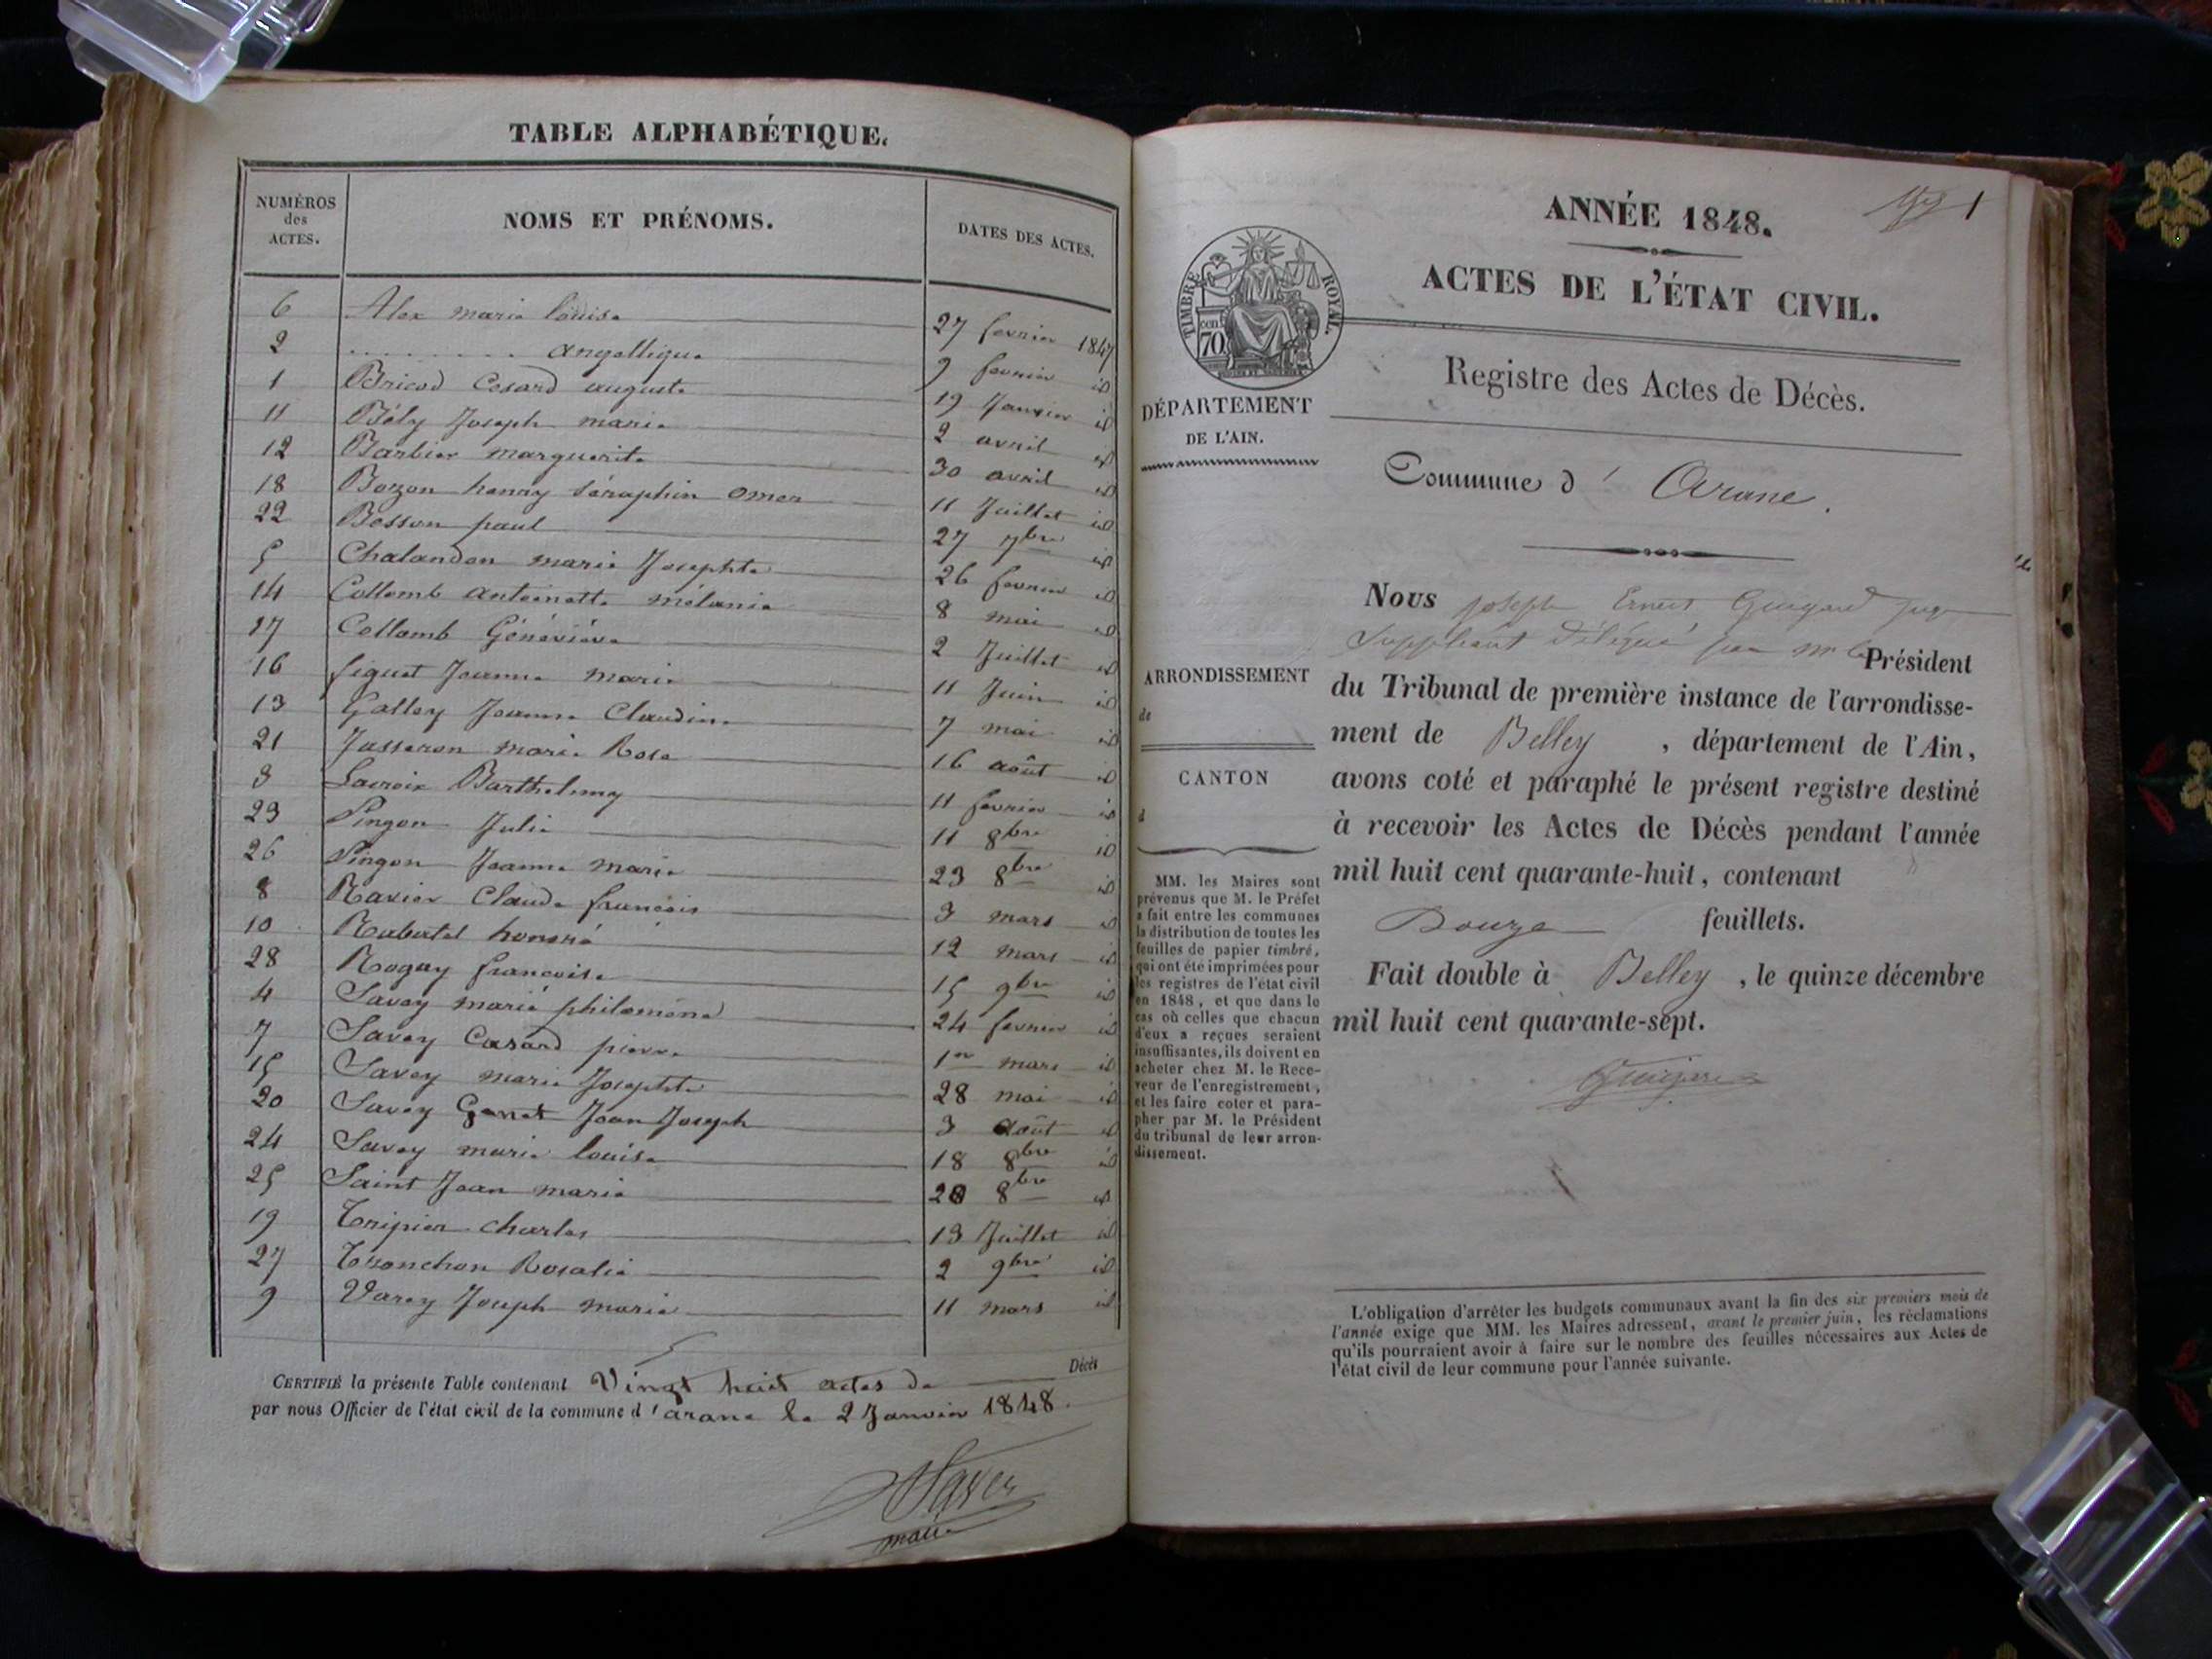 TABLE ALPHABÉTIQUE.
NUMÉROS des ACTES.
NOMS ET PRÉNOMS.
DATES DES ACTES.
6 Alex marie louise 27 fevrier 1847
2 ........ angellique 9 fevrier id
1 Bricod Cesard auguste 19 Janvier id
11 Bély Joseph marie 2 avril id
12 Barbier marguerite 30 avril id
18 Bozon henry Séraphin Omer 11 Juillet id
22 Bosson paul 27 7bre id
5 Chalandon marie Josephte 26 fevrier id
14 Collomb Antoinette mélanie 8 mai id
17 Collomb Généviève 2 Juillet id
16 figuet Jeanne marie 11 Juin id
13 Galley Jeanne Claudine 7 mai id
21 Jasseron marie Rose 16 août id
3 Lacroix Barthelemy 11 fevrier id
23 Pingon Julie 11 8bre id
26 Pingon Jeanne marie 23 8bre id
8 Ravier Claude françois 3 mars id
10 Rabatel honoré 12 mars id
28 Rogay francoise 15 9bre id
4 Savey marie philomène 24 fevrier id
7 Savey Casard pierre 1er mars id
15 Savey marie Josephte 28 mai id
20 Savey Ganet Jean Joseph 3 Août id
24 Savey marie louise 18 8bre id
25 Saint Jean marie 20 8bre id
19 Tripier charles 13 Juillet id
27 Tronchon Rosalie 2 9bre id
9 Varey Joseph marie 11 mars id
CERTIFIÉ la présente Table contenant Vingt huit actes de Décès
par nous Officier de l'état civil de la commune d'arane le 2 Janvier 1848.
Savey
maire
1
ANNÉE 1848.
ACTES DE L'ÉTAT CIVIL.
TIMBRE ROYAL.
cent.
70
Registre des Actes de Décès.
DÉPARTEMENT
DE L'AIN.
Commune d' Arane.
ARRONDISSEMENT
de
CANTON
d
MM. les Maires sont
prévenus que M. le Préfet
a fait entre les communes
la distribution de toutes les
feuilles de papier timbré,
qui ont été imprimées pour
les registres de l'état civil
en 1848, et que dans le
cas où celles que chacun
d'eux a reçues seraient
insuffisantes, ils doivent en
acheter chez M. le Rece-
veur de l'enregistrement,
et les faire coter et para-
pher par M. le Président
du tribunal de leur arron-
dissement.
Nous joseph Ernest Guigard juge
Suppléant délégué par mr le Président
du Tribunal de première instance de l'arrondisse-
ment de Belley, département de l'Ain,
avons coté et paraphé le présent registre destiné
à recevoir les Actes de Décès pendant l'année
mil huit cent quarante-huit, contenant
Douze feuillets.
Fait double à Belley, le quinze décembre
mil huit cent quarante-sept.
Guigard
L'obligation d'arrêter les budgets communaux avant la fin des six premiers mois de
l'année exige que MM. les Maires adressent, avant le premier juin, les réclamations
qu'ils pourraient avoir à faire sur le nombre des feuilles nécessaires aux Actes de
l'état civil de leur commune pour l'année suivante.